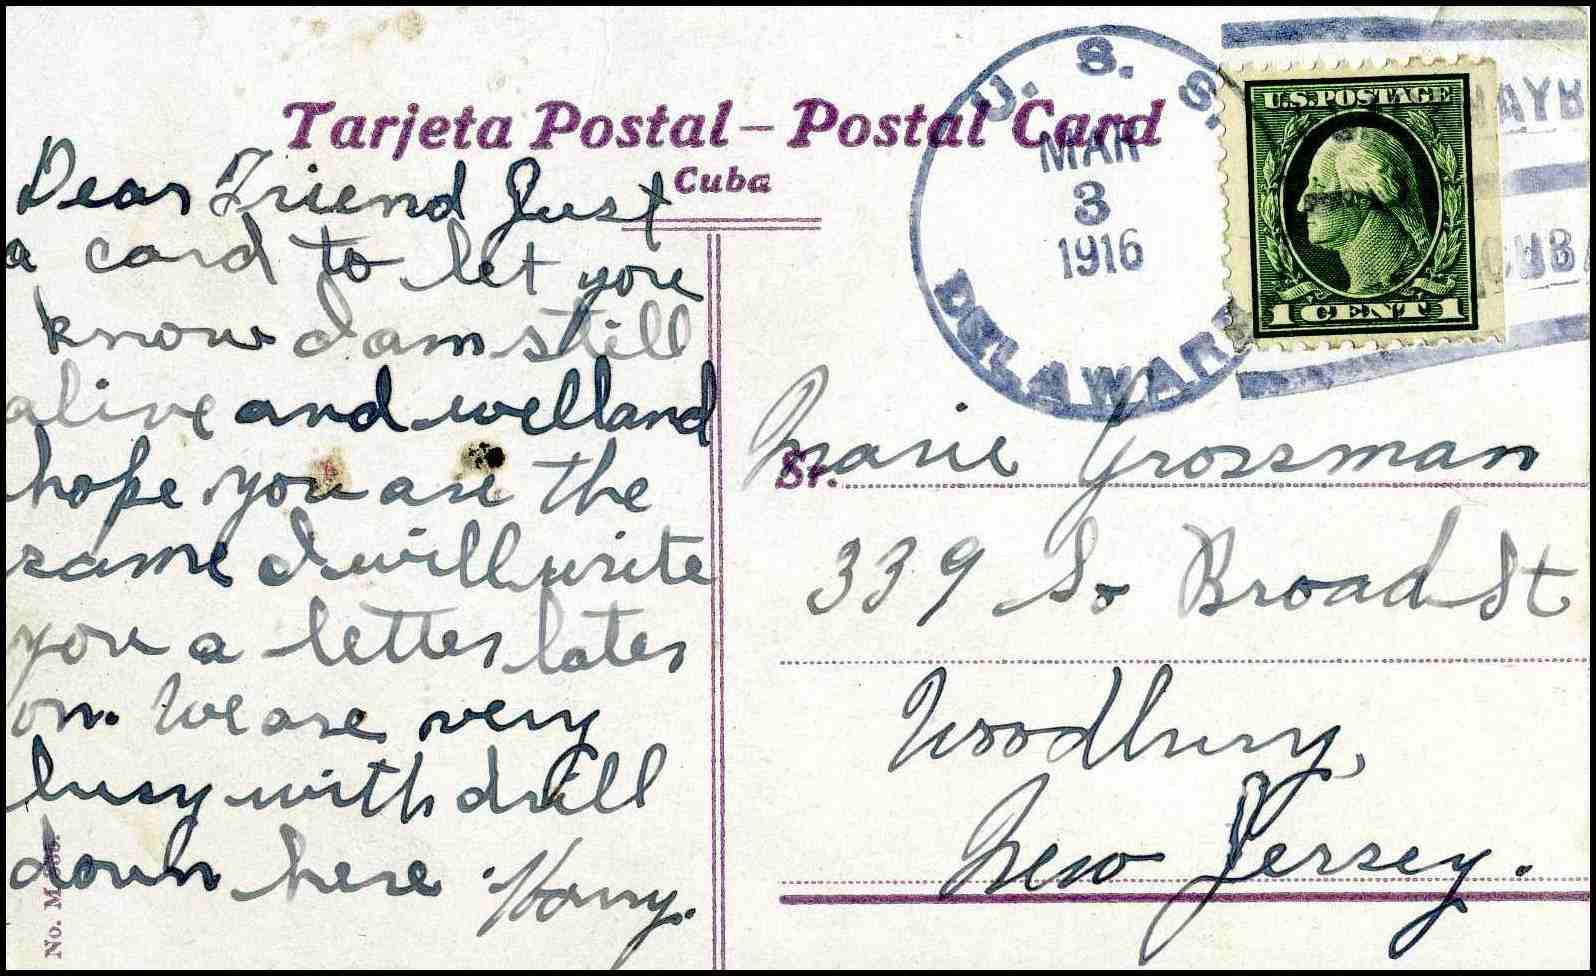 Tarjeta Postal – Postal Card
Cuba
U. S. S.
MAR
3
1916
DELAWARE
U.S. POSTAGE
1 CENT 1
CUBA
Dear Friend Just
a card to let you
know I am still
alive and well and
hope you are the
same I will write
you a letter later
on. We are very
busy with drill
down here. Harry.
Sr.
Marie Grossman
339 So Broad St
Woodbury,
New Jersey.